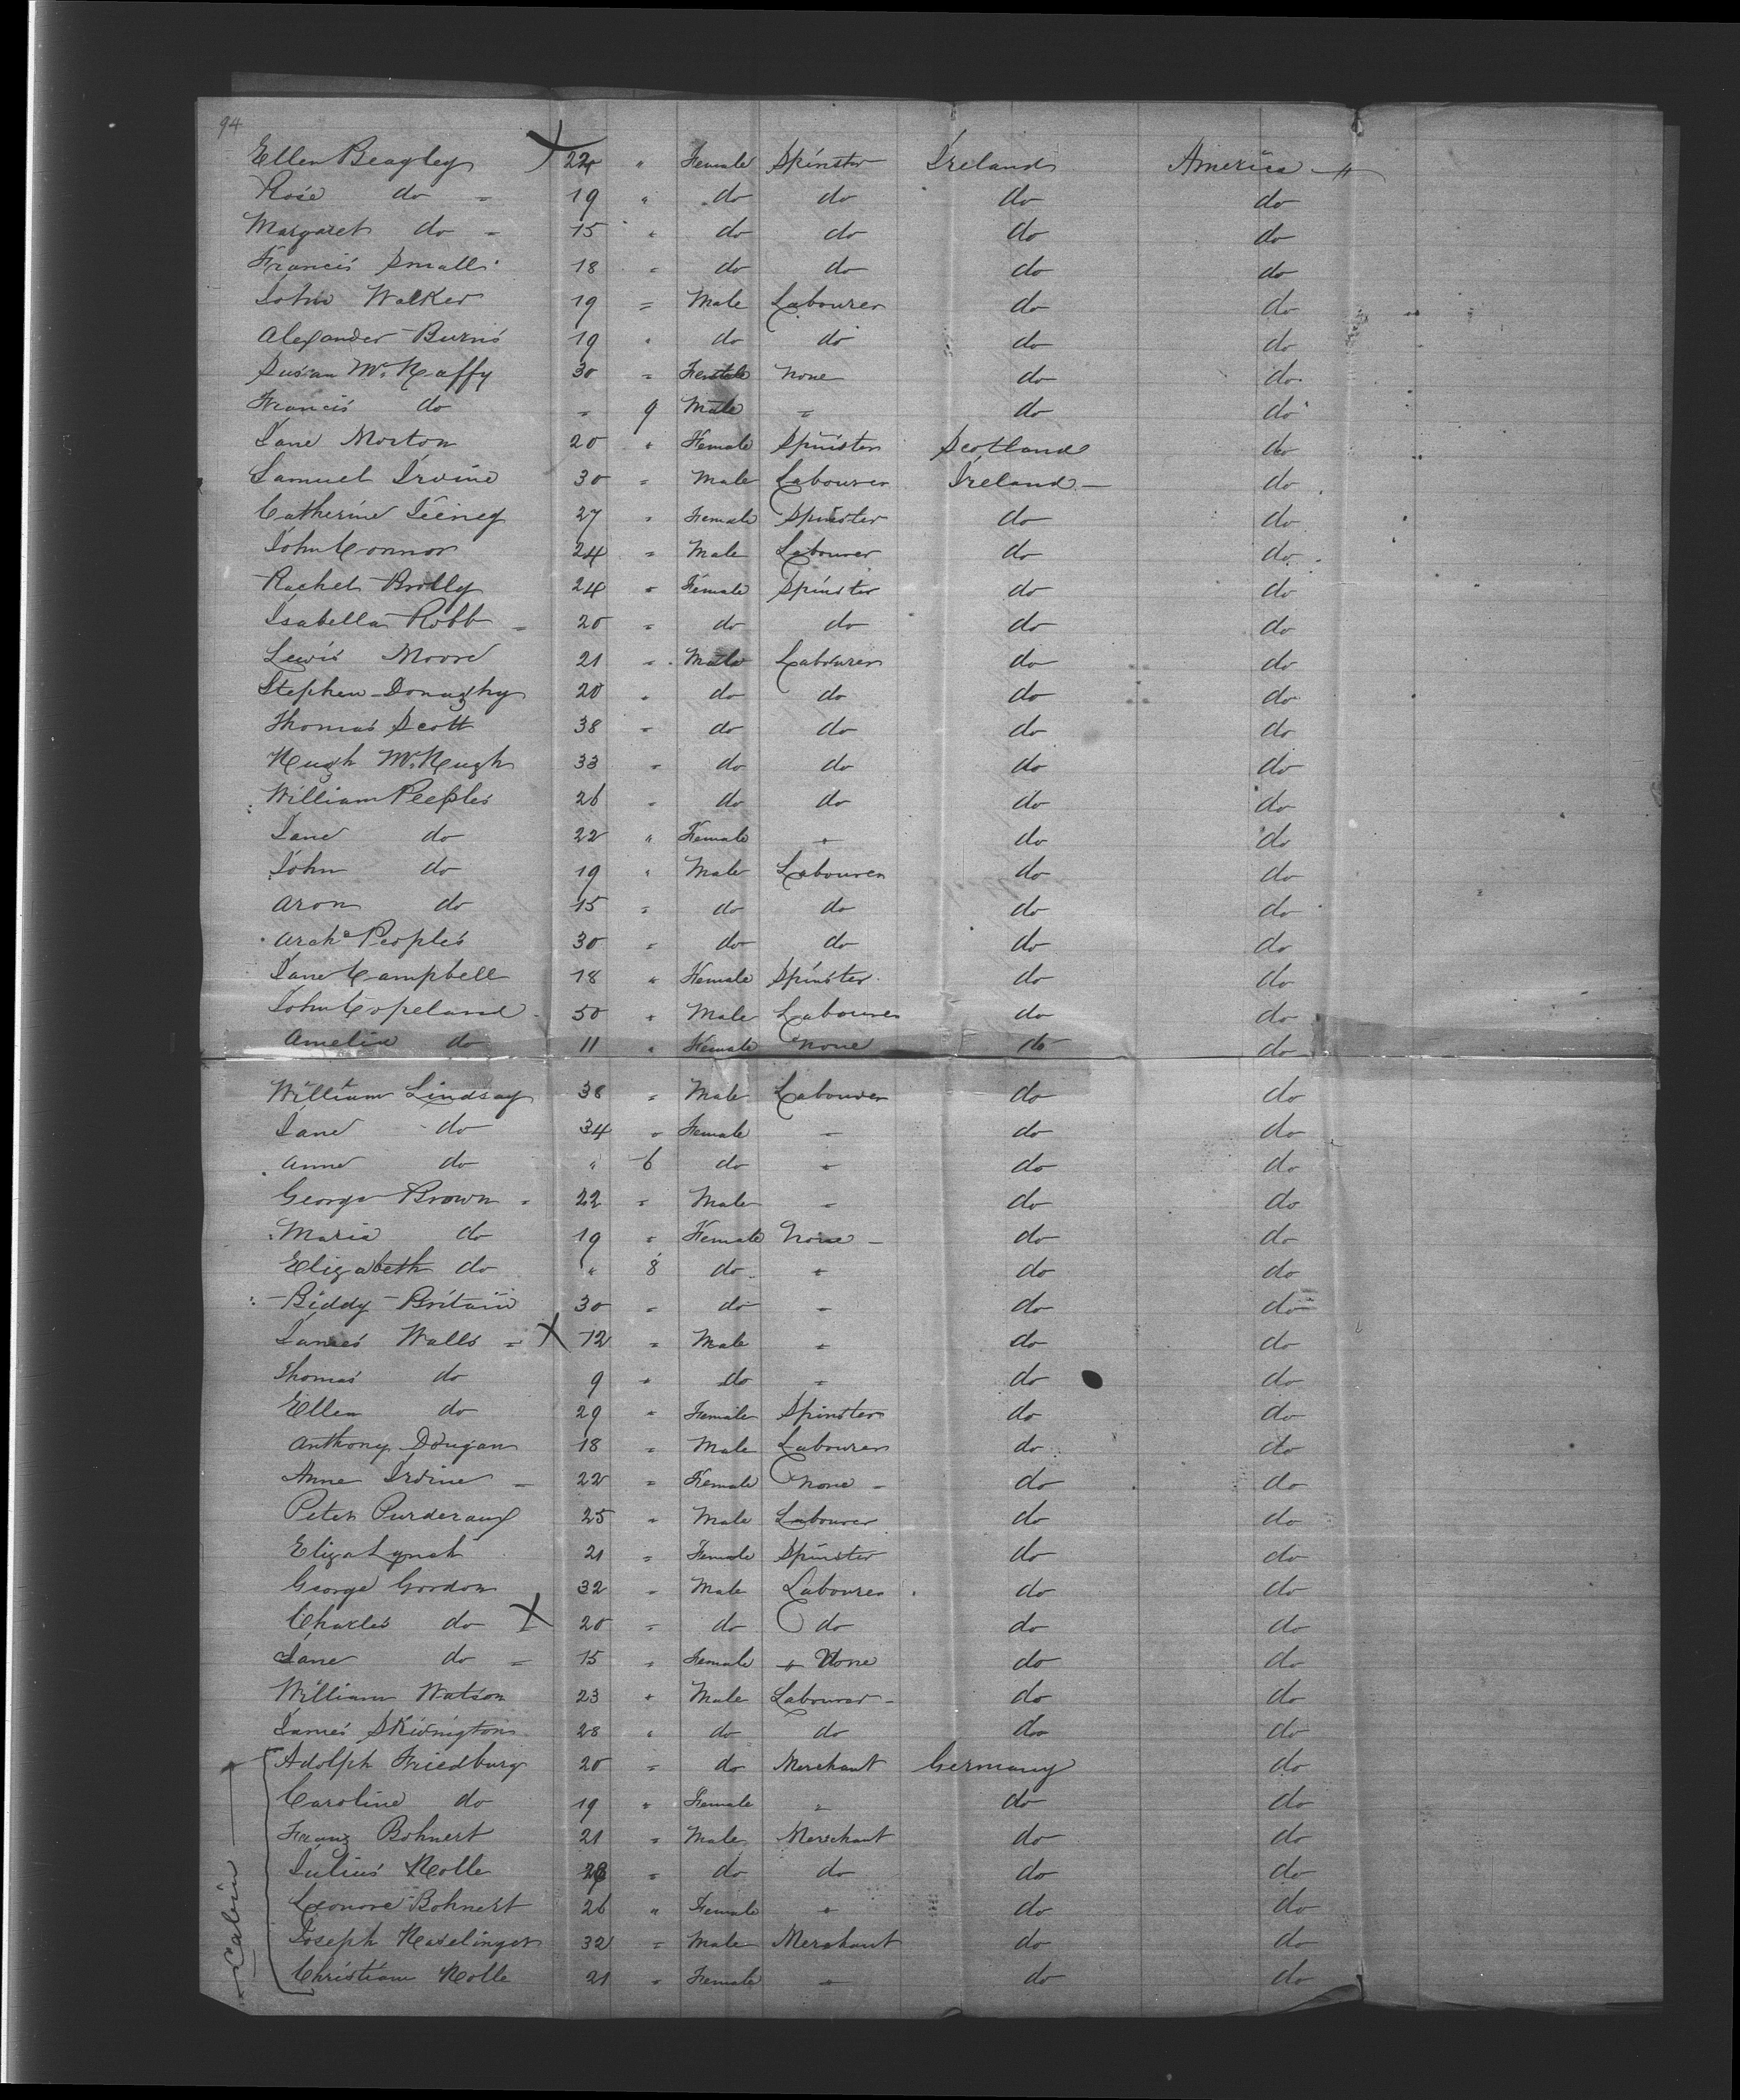 94
Ellen Beagley X 22 " Female Spinster Ireland America
Rose do = 19 " do do do do
Margaret do = 15 " do do do do
Francis Small 18 = do do do do
John Walker 19 = Male Labourer do do
Alexander Burns 19 " do do do do
Susan Mc.Haffy 30 = Female None do do
Francis do = 9 Male = do do
Jane Morton 20 " Female Spinster Scotland do
Samuel Irvine 30 = Male Labourer Ireland do
Catherine 27 = Female Spinster do do
John Connor 24 = Male Labourer do do
Rachel Brolly 24 = Female Spinster do do
Isabella Robb = 20 = do do do do
Lewis Moore 21 = Male Labourer do do
Stephen Donaghy 20 " do do do do
Thomas Scott 38 = do do do do
Hugh Mc.Hugh 33 = do do do do
William Peeples 26 = do do do do
Jane do 22 " Female " do do
John do 19 " Male Labourer do do
Aron do 15 = do do do do
Archd Peoples 30 = do do do do
Jane Campbell 18 " Female Spinster do do
John Copeland 50 " Male Labourer do do
Amelia do 11 " Female None do do
William Lindsay 38 = Male Labourer do do
Jane do 34 = Female = do do
Anne do " 6 do " do do
George Brown = 22 = Male = do do
Maria do 19 = Female None do do
Elizabeth do " 8 do " do do
Biddy Britain 30 = do = do do
James Walls = X 12 = Male " do do
Thomas do 9 " do = do do
Ellen do 29 " Female Spinster do do
Anthony Dougan 18 = Male Labourer do do
Anne Irvine = 22 = Female None do do
Peter 25 " Male Labourer do do
Eliza Lynch 21 = Female Spinster do do
George Gordon 32 = Male Labourer do do
Charles do X 20 = do do do do
Jane do = 15 = Female " None do do
William Watson 23 " Male Labourer do do
James Skivington 28 " do do do do
Adolph Friedburg 20 = do Merchant Germany do
Caroline do 19 " Female = do do
Franz Bohnert 21 = Male Merchant do do
Julius Nolle = do do do do
Leonore Bohnert 26 " Female " do do
Joseph Haselinger 32 = Male Merchant do do
Christiam Nolle 21 " Female = do do
Cabin